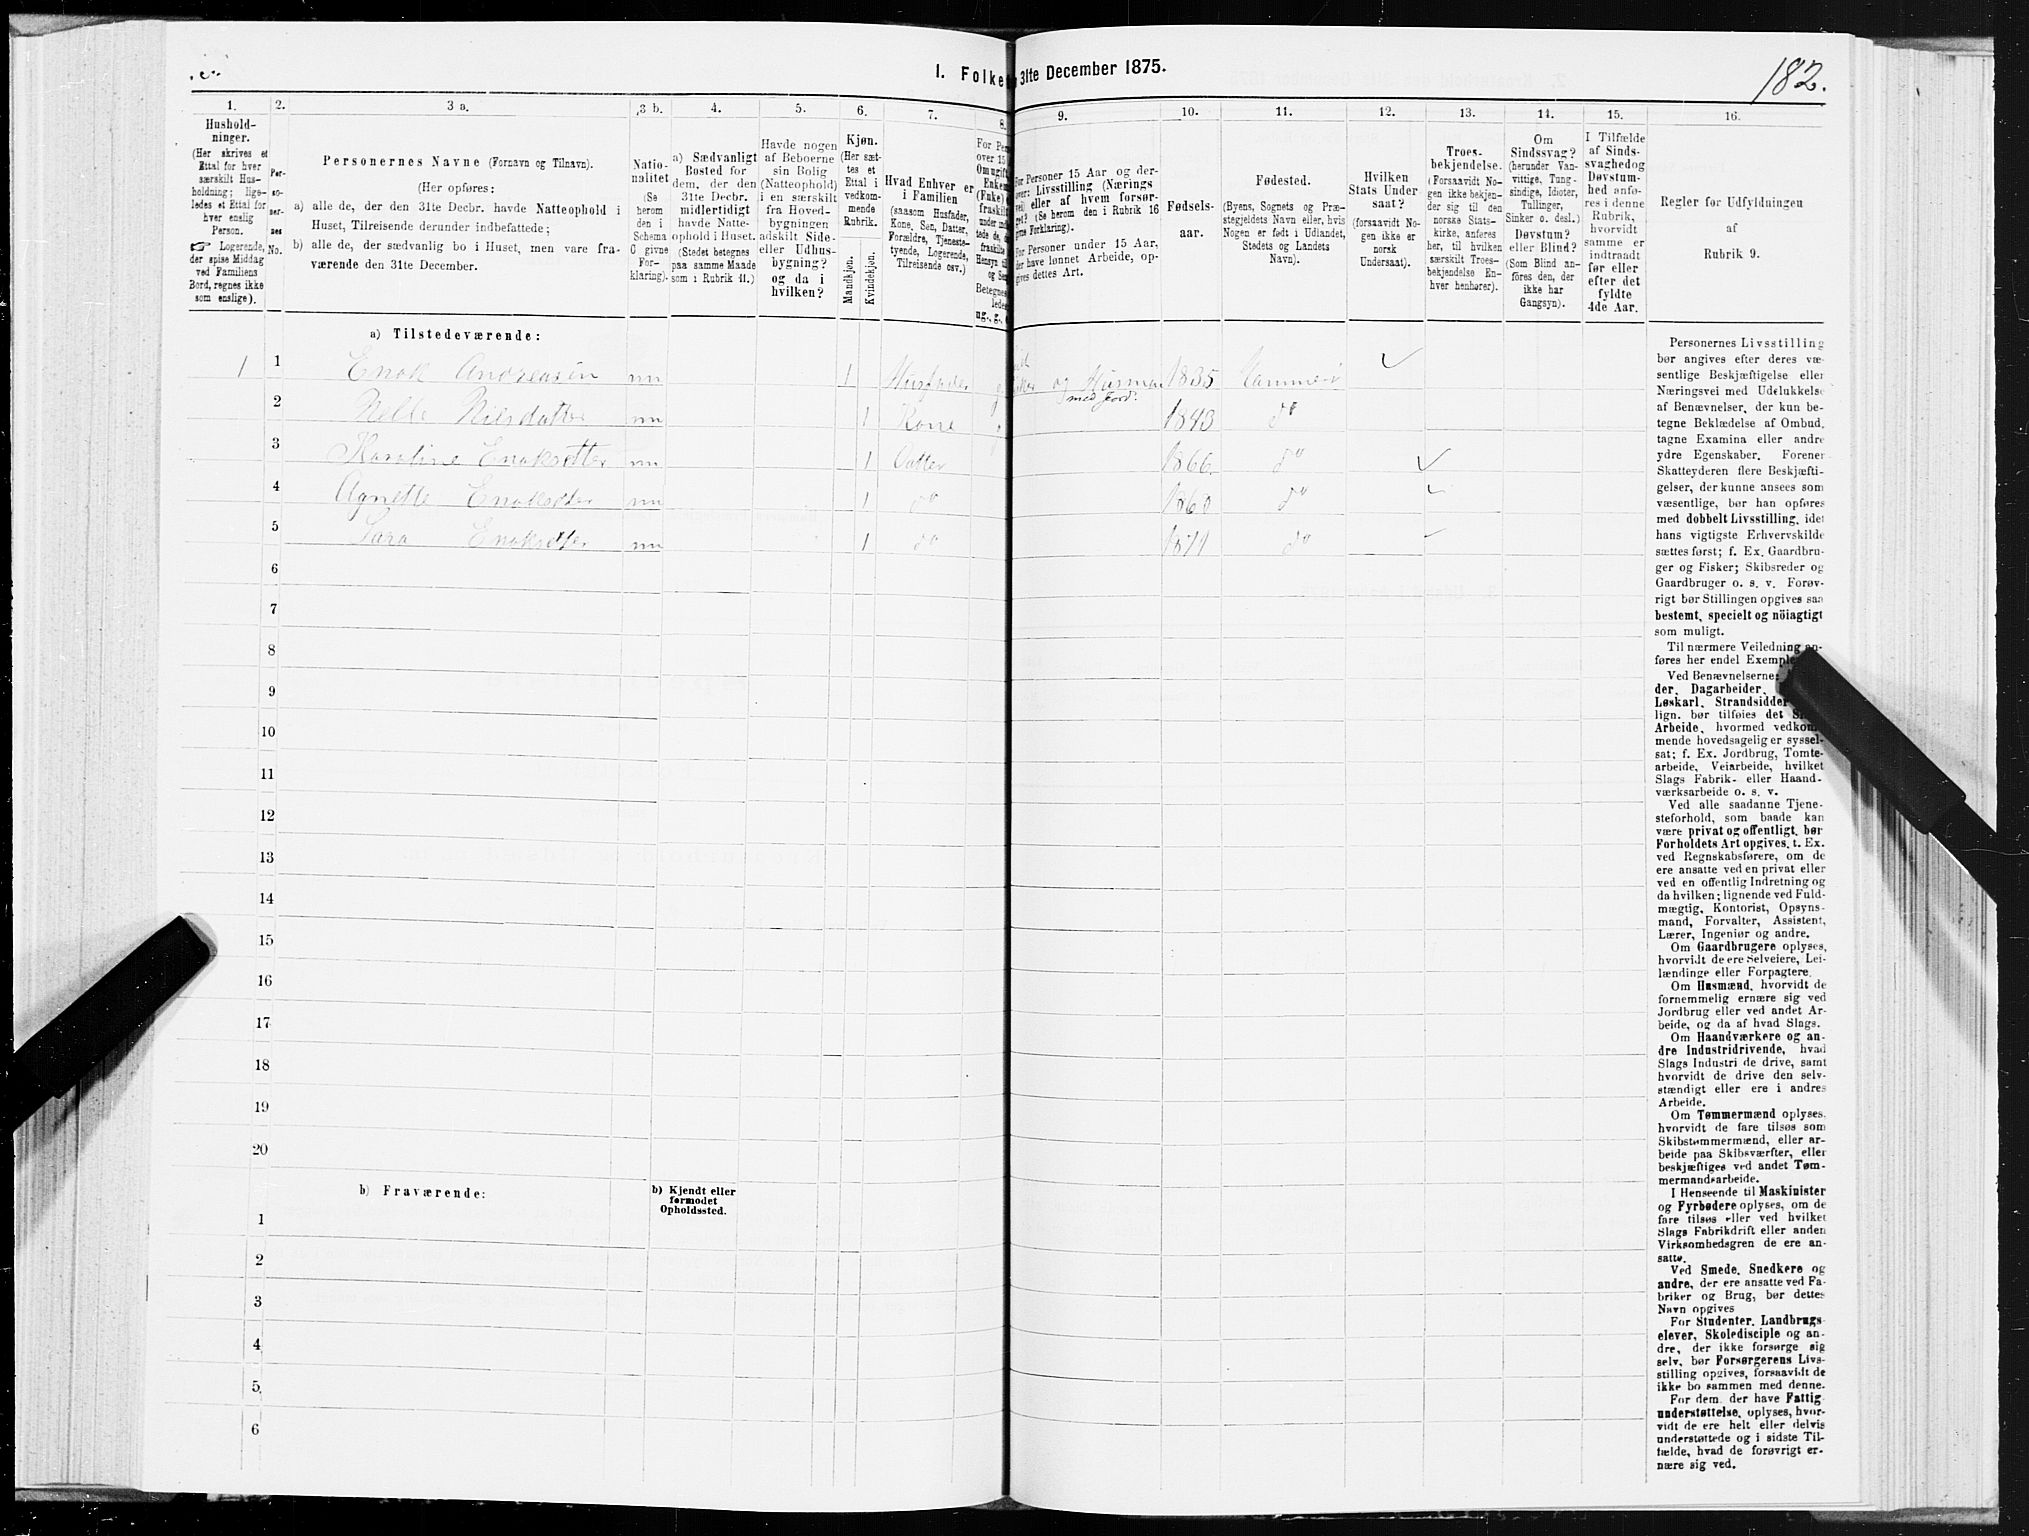 I. Folke 31te December 1875.
182.
1. 2. 3 a. 3 b. 4. 5. 6. 7. 8. 9. 10. 11. 12. 13. 14. 15. 16.
Hushold-
ninger.
(Her skrives et
Ettal for hver
særskilt Hus-
holdning; lige-
ledes et Ettal for
hver enslig
Person.
☞ Logerende,
der spise Middag
ved Familiens
Bord, regnes ikke
som enslige).
Per-
so-
ner-
nes
No.
Personernes Navne (Fornavn og Tilnavn).
(Her opføres:
a) alle de, der den 31te Decbr. havde Natteophold i
Huset, Tilreisende derunder indbefattede;
b) alle de, der sædvanlig bo i Huset, men vare fra-
værende den 31te December.
Natio-
nalitet
(Se
herom
den i
Schema
C givne
For-
klaring).
a) Sædvanligt
Bosted for
dem, der den
31te Decbr.
midlertidigt
havde Natte-
ophold i Huset.
(Stedet betegnes
paa samme Maade
som i Rubrik 11.)
Havde nogen
af Beboerne
sin Bolig
(Natteophold)
i en særskilt
fra Hoved-
bygningen
adskilt Side-
eller Udhus-
bygning?
og da i
hvilken?
Kjøn.
(Her sæt-
tes et
Ettal i
vedkom-
mende
Rubrik.
Mandkjøn.
Kvindekjøn.
Hvad Enhver er
i Familien
(saasom Husfader,
Kone, Søn, Datter,
Forældre, Tjeneste-
tyende, Logerende,
Tilreisende osv.)
For Pers
over 15
Omugift
Enkem
(Enke)
fraskilt
under indb
tede de, d
fraskilte
Hensyn til
og Sen
Betegnes
ledes
ug., g.,
For Personer 15 Aar og der-
over: Livsstilling (Nærings
vei) eller af hvem forsør-
get? (Se herom den i Rubrik 16
givne Forklaring).
For Personer under 15 Aar,
der have lønnet Arbeide, op-
gives dettes Art.
Fødsels-
aar.
Fødested.
(Byens, Sognets og Præ-
stegjeldets Navn eller, hvis
Nogen er født i Udlandet,
Stedets og Landets
Navn).
Hvilken
Stats Under-
saat?
(forsaavidt No-
gen ikke er
norsk
Undersaat).
Troes-
bekjendelse.
(Forsaavidt No-
gen ikke bekjen-
der sig til den
norske Stats-
kirke, anføres
her, til hvilken
særskilt Troes-
bekjendelse En-
hver henhører).
Om
Sindssvag?
(herunder Van-
vittige, Tung-
sindige, Idioter,
Tullinger,
Sinker o. desl.)
Døvstum?
eller Blind?
(Som Blind an-
føres den, der
ikke har
Gangsyn).
I Tilfælde
af Sinds-
svaghedog
Døvstum-
hed anfø-
res i denne
Rubrik,
hvorvidt
samme er
indtraadt
før eller
efter det
fyldte
4de Aar.
Regler for Udfyldningen
af
Rubrik 9.
a) Tilstedeværende:
1 1 Enok Andreasen nn 1 Husfader g og Husman 1835
med Jord.
2 Nelle Nilsdatter nn 1 Kone 1843 do
3 Karoline Enoksdtter nn 1 Datter 1866. do
4 Agnette Enoksdter nn 1 do do
5 Sara Enoksdtter nn 1 do 1871 do
6
7
8
9
10
11
12
13
14
15
16
17
18
19
20
b) Fraværende:
b) Kjendt eller
formodet
Opholdssted.
1
2
3
4
5
6
Personernes Livsstilling
bør angives efter deres væ-
sentlige Beskjæftigelse eller
Næringsvei med Udelukkelse
af Benævnelser, der kun be-
tegne Beklædelse af Ombud,
tagne Examina eller andre
ydre Egenskaber. Forener
Skatteyderen flere Beskjæfti-
gelser, der kunne ansees som
væsentlige, bør han opføres
med dobbelt Livsstilling, idet
hans vigtigste Erhvervskilde
sættes først; f. Ex. Gaardbru-
ger og Fisker; Skibsreder og
Gaardbruger o. s. v. Forøv-
rigt bør Stillingen opgives saa
bestemt, specielt og nöiagtigt
som muligt.
Til nærmere Veiledning an-
føres her endel Exemple
Ved Benævnelserne:
der, Dagarbeider,
Løskarl, Strandsidder
lign. bør tilføies det
Arbeide, hvormed vedkom-
mende hovedsagelig er syssel-
sat; f. Ex. Jordbrug, Tomte-
arbeide, Veiarbeide, hvilket
Slags Fabrik- eller Haand-
værksarbeide o. s. v.
Ved alle saadanne Tjene-
steforhold, som baade kan
være privat og offentligt, bør
Forholdets Art opgives, t. Ex.
ved Regnskabsførere, om de
ere ansatte ved en privat eller
ved en offentlig Indretning og
da hvilken; lignende ved Fuld-
mægtig, Kontorist, Opsyns-
mand, Forvalter, Assistent,
Lærer, Ingeniør og andre.
Om Gaardbrugere oplyses,
hvorvidt de ere Selveiere, Lei-
lændinge eller Forpagtere.
Om Husmænd, hvorvidt de
fornemmelig ernære sig ved
Jordbrug eller ved andet Ar-
beide, og da af hvad Slags.
Om Haandværkere og an-
dre Industridrivende, hvad
Slags Industri de drive, samt
hvorvidt de drive den selv-
stændigt eller ere i andres
Arbeide.
Om Tømmermænd oplyses,
hvorvidt de fare tilsøs som
Skibstømmermænd, eller ar-
beide paa Skibsværfter, eller
beskjæftiges ved andet Tøm-
mermandsarbeide.
I Henseende til Maskinister
og Fyrbødere oplyses, om de
fare tilsøs eller ved hvilket
Slags Fabrikdrift eller anden
Virksomhedsgren de ere an-
satte.
Ved Smede, Snedkere og
andre, der ere ansatte ved Fa-
briker og Brug, bør dettes
Navn opgives
For Studenter, Landbrugs-
elever, Skoledisciple og an-
dre, der ikke forsørge sig
selv, bør Forsørgerens Livs-
stilling opgives, forsaavidt de
ikke bo sammen med denne.
For dem, der have Fattig-
understøttelse, oplyses, hvor-
vidt de ere helt eller delvis
understøttede og i sidste Til-
fælde, hvad de forøvrigt er-
nære sig ved.